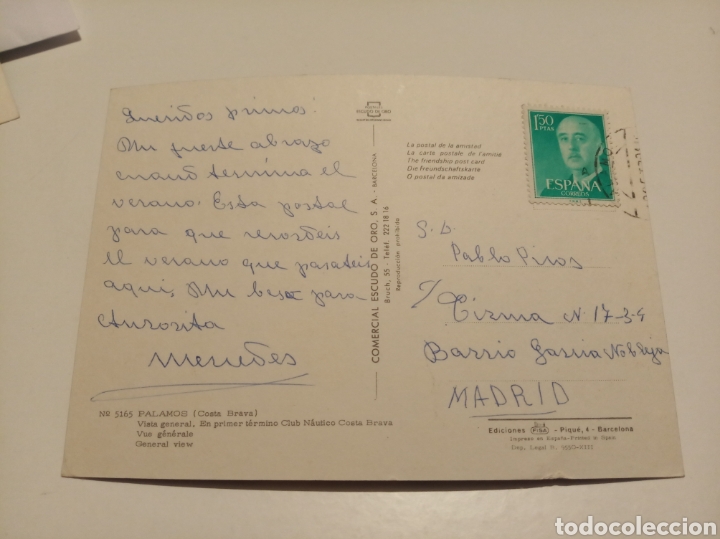 Queridos primos:
Un fuerte abrazo
cuando termina el
verano. Esta postal
para que recordéis
el verano que pasateis
aqui, Un beso para
Aurorita
Mercedes
Nº 5165 PALAMOS (Costa Brava)
Vista general. En primer término Club Náutico Costa Brava
Vue générale
General view
ESCUDO DE ORO
COMERCIAL ESCUDO DE ORO, S. A. - BARCELONA
Bruch, 35 - Teléf. 222 18 16
Reproducción prohibida
La postal de la amistad
La carte postale de l'amitié
The friendship post-card
Die freundschaftskarte
O postal da amizade
1'50
PTAS
ESPAÑA
CORREOS
S. D.
Pablo Piros
C/ Tirma N. 17-3-4
Barrio Garcia Noblejas
MADRID
Ediciones FISA - Piqué, 4 - Barcelona
Impreso en España-Printed in Spain
Dep. Legal B.
todocoleccion